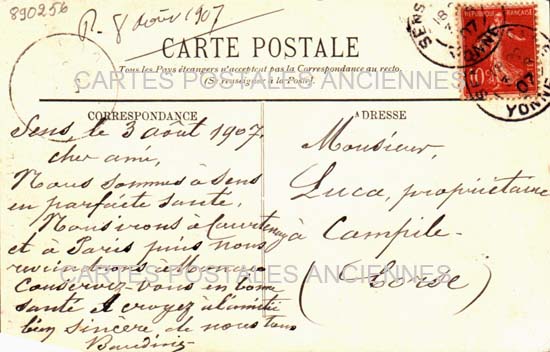 890256
R. 8 août 1907
CARTE POSTALE
Tous les Pays étrangers n'acceptent pas la Correspondance au recto.
(Se renseigner à la Poste).
CARTES POSTALES ANCIENNES
RÉPUBLIQUE FRANÇAISE
10
SENS
YONNE
CORRESPONDANCE
Sens le 3 août 1907.
cher ami,
Nous sommes à Sens
en parfaite santé.
Nous irons à Courtenay
et à Paris puis nous
reviendrons à Monaco
Conservez vous en bonne
santé et croyez à l'amitié
bien sincère de nous tous
ADRESSE
Monsieur,
Luca, propriétaire
à Campile-
(Corse)
CARTES POSTALES ANCIENNES